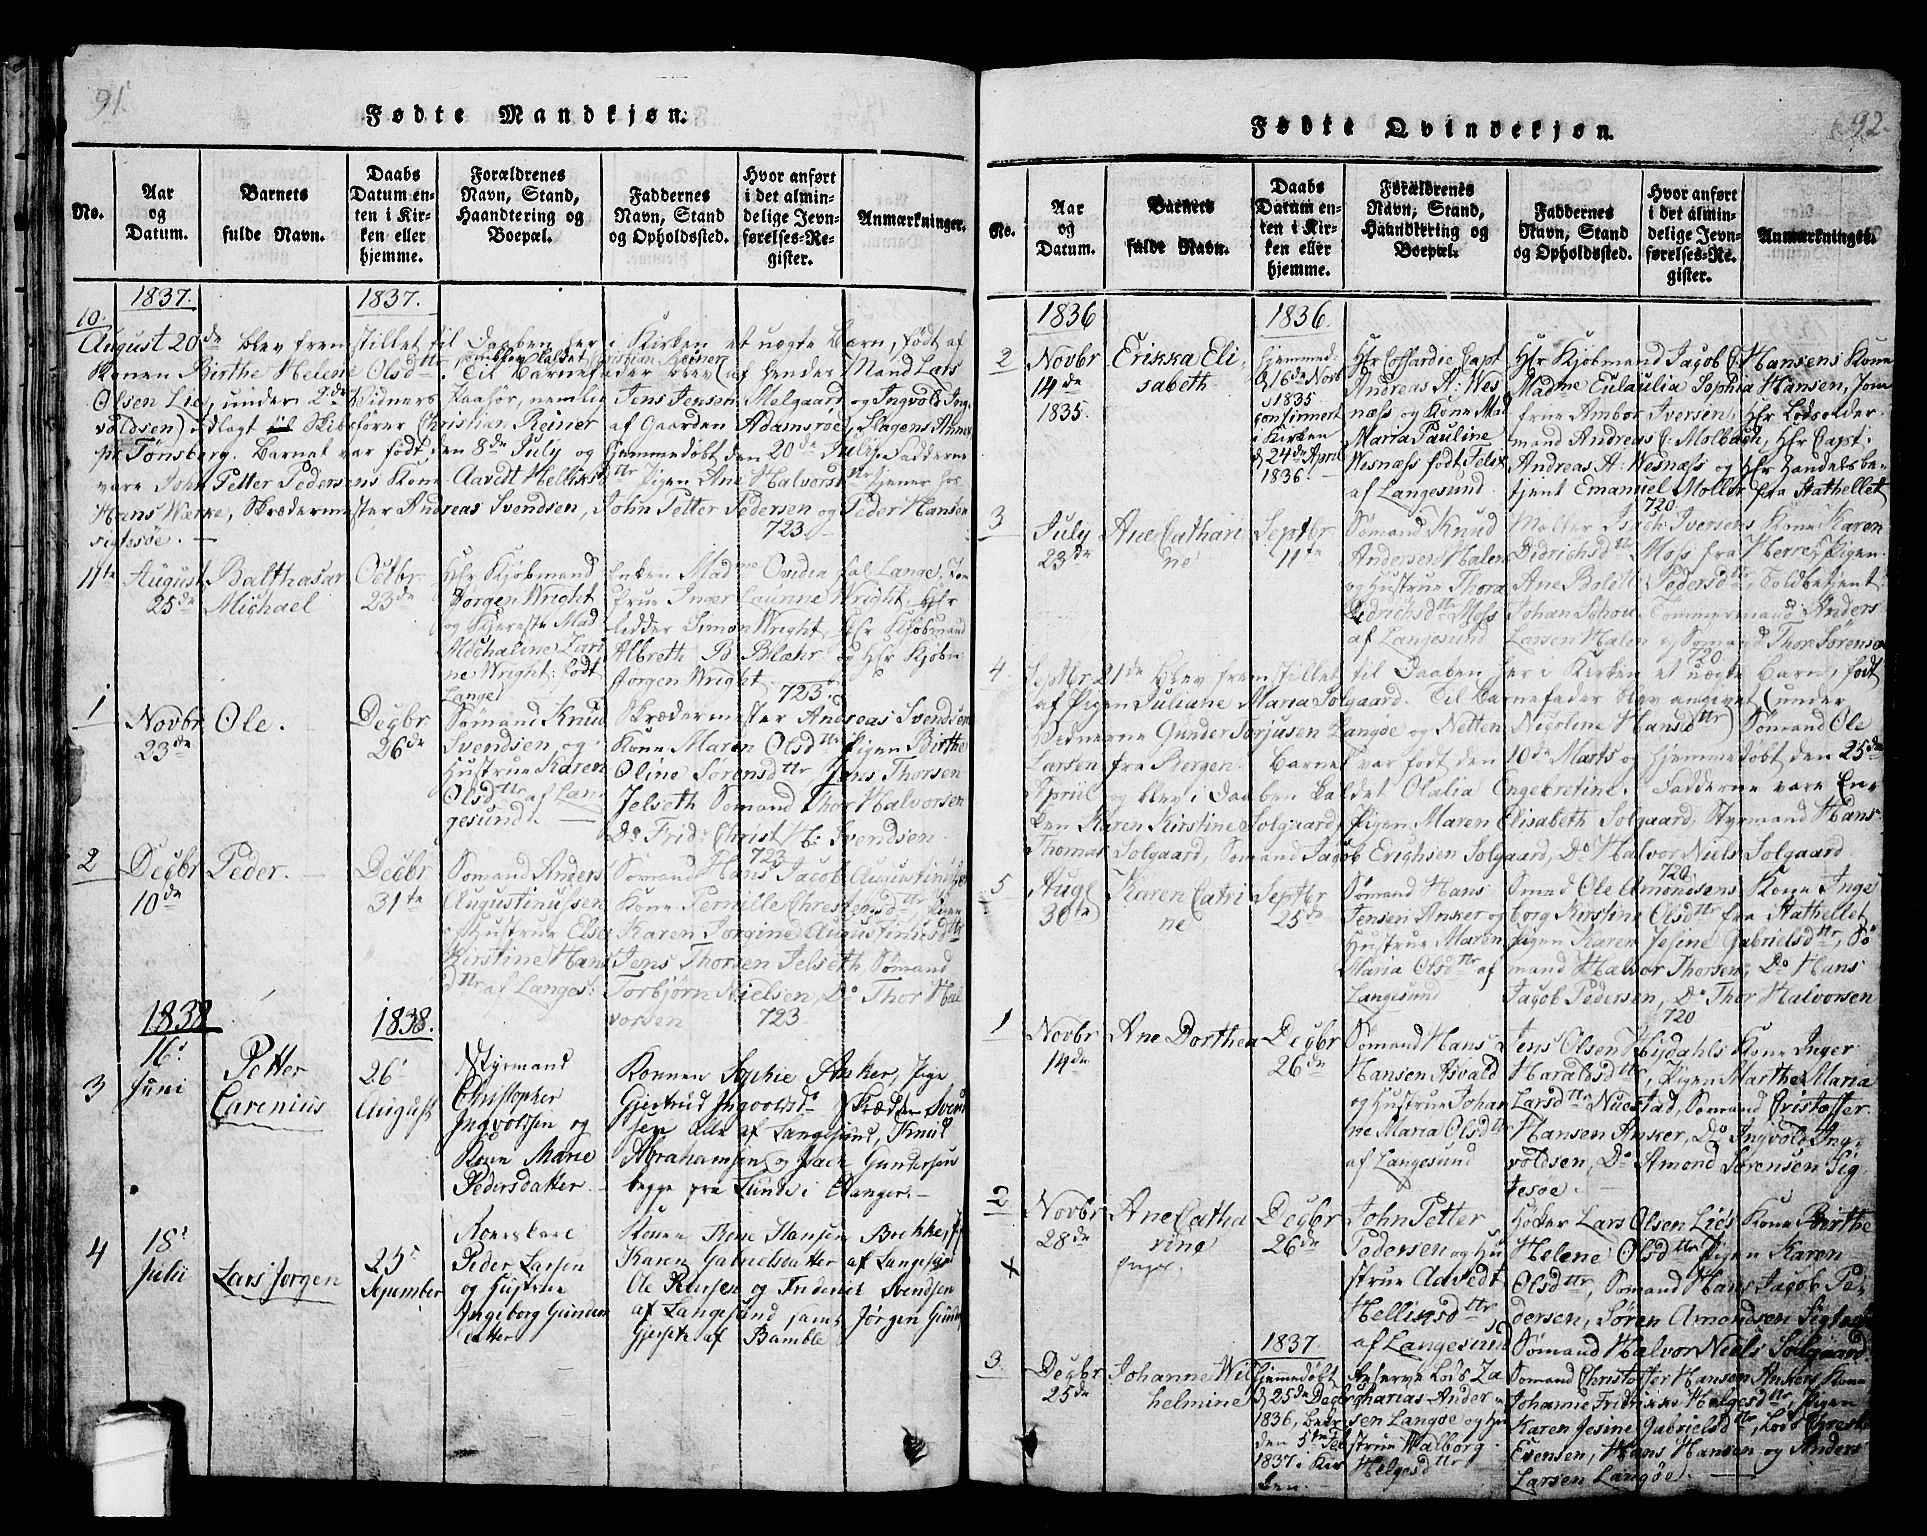 91.
Fødte Mandkjøn.
No.
Aar og Datum.
Barnets fulde Navn.
Daabs Datum enten i Kirken eller hjemme.
Forældrenes Navn, Stand, Haandtering og Boepæl.
Faddernes Navn, Stand og Opholdssted.
Hvor anført i det almindelige Jevnførelses-Register.
Anmærkninger.
1837. 1837.
10.
August 20de blev fremstillet til Daaben her i Kirken et uægte Barn, født af
Konen Birthe Helene Olsdttr. (som blev kaldet Christian Reiner) Til Barnefader blev (af hendes Mand Lars
Olsen Lie, under 2de Vidners Paahør, nemlig Jens Jensen Malgaard og Ingvold Ing-
voldsen) udlagt Skibsfører Christian Reiner af Gaarden Adamsrøe, Slagens Annex
pr Tønsberg. Barnet var født den 8de July og hjemmedøbt den 20de July. Fadderne
vare John Petter Pedersens Kone Aavedt Helliksdttr Pigen Ane Halvorsdttr tjener hos
Hans Værke, Skrædermester Andreas Svendsen, John Petter Pedersen og Peder Hansen
Sigtesøe. — 723
11te August 25de
Balthasar Michael
Octbr 23de
Hr Kjøbmand
Jørgen Wright
og Kjereste Mad
Michaline Lari
ne Wright født
Lange
Enken Madme Ovidia Lange, Jom
frue Inger Laurine Wright, Hr
Simon Wright, Hr Kjøbmand
Albrett B Blæhr og Hr Kjøbm:
Jørgen Wright
723
1
Novbr 23de
Ole.
Decbr 26de
Sømand Knud
Svendsen og
Hustrue Karen
Olsdttr af Lan
gesund. —
Skrædermester Andreas Svendsen
Kone Maren Olsdttr Pigen Birthe
Oline Sørensdttr Jens Thorsen
Jelseth Sømand Thor Halvorsen
Do Fridr Christ H: Svendsen
723
2
Decbr 10de
Peder.
Decbr 31te
Sømand Anders
Augustinussen
og Hustrue Else
Kirstine Hans
dttr af Langes:
Sømand Hans Jacob Augustinus
Kone Pernille Christensdttr, Pigen
Karen Jørgine Augustinusdttr
Jens Thorsen Jelseth, Sømand
Torbjørn Nielsen, Do Thor Hal
vorsen 723
1838 1838.
3
16' Juni
Petter Carenius
26' August
Styrmand
Christopher
Ingvoldsen og
Kone Marie
Pedersdatter. —
Konnen Sophie Anker, Pige
Gjertrud Ingvoldsd: Skræder Svend
sen alle af Langesund, Knud
Abrahamsen og Isack Gundersen
begge fra Tunds i Eidanger. —
4
18' Julii
Lars Jørgen
25' September
Peder Larsen
og Hustrue
Ingeborg Gunders
datter
Konen Rine Hansen Brekke, P
Karen Gabrielsdatter af Langesund
Ole Hansen og Friderich Svendsen
af Langesund samt Jørgen Gund
Gjerseth af Bamble
92.
Fødte Qvindekjøn.
No.
Aar og Datum.
Barnets fulde Navn.
Daabs Datum enten i Kirken eller hjemme.
Forældrenes Navn, Stand, Haandtering og Boepæl.
Faddernes Navn, Stand og Opholdssted.
Hvor anført i det almindelige Jevnførelses-Register.
Anmærkninger.
1836 1836.
2
Novbr 14de 1835
Erikka Elisabeth
hjemmed.
d 16de Novb
1835
confirmert
i Kirken
d 24de April
1836.
Hr Coffardie Capt
Andreas A: Wes
næss og Kone Mad
Maria Pauline
Wesnæss født
af Langesund
Hr Kjøbmand Jacob C Hansens Kone
Madme Eulaulia Sophia Hansen, Jom
frue Ambor Iversen, Hr Lodsolder
mand Andreas C. Molbach, Hr Capt.
Andreas A: Wesnæss og Hr Handelsbe-
tjent Emanuel Møller fra Stathellet
720
3
July 23de
Ane Cathari ne
Septbr 11te
Sømand Knud
Andersen Halen
og Hustrue Thora
Didrichsdttr Moss
af Langesund
Isack Iversens Kone Karen
Didrichsdttr Moss fra Herre, Pigen
Ane Bolette Pedersdttr, Toldbetjent
Johan Schou Tømmermand Anders
Larsen Halen og Sømand Thor Sørensen
720
4
Septbr 21de blev fremstillet til Daaben her i Kirken et uægte Barn, født
af Pigen Juliane Maria Solgaard. Til Barnefader blev angivet (under
Vidnerne Gunder Torjusen Langøe og Netten Nicoline Hansdttr) Sømand Ole
Larsen fra Bergen. Barnet var født den 10de Marts og hjemmedøbt den 25de
April og blev i Daaben kaldet Olalia Engebretine. Fadderne vare En-
ken Karen Kirstine Solgaard, Pigen Maren Elisabeth Solgaard, Styrmand Hans
Thomas Solgaard, Sømand Jacob Erichsen Solgaard, Do Halvor Niels Solgaard
720
5
Aug. 30te
Karen Catri ne
Septbr 25de
Sømand Hans
Jensen Anker og
Hustrue Maren
Maria Olsdttr af
Langesund
Smed Ole Amondsens Kone Inge
borg Kirstine Olsdttr fra Stathellet
Pigen Karen Jesine Gabrielsdttr, Sø
mand Halvor Thorsen, Do Hans
Jacob Pedersen, Do Thor Halvorsen
720
1
Novbr 14de
Ane Dorthea
Decbr 26de
Sømand Hans
Hansen Asvald
og Hustrue Johan
ne Maria Olsdttr
af Langesund
Jens Olsen Hydahls Kone Inger
Haraldsdttr, Pigen Marthe Maria
Larsdttr Nuestad, Sømand Cristoffer
Hansen Anker, Do Ingvold Ing-
voldsen, Do Amond Sørensen Sig
tesøe.
2
Novbr 28de
Ane Catha rine
Decbr 26de
John Petter
Pedersen og Hu
strue Aavedt
Helliksdttr
af Langesund
Høker Lars Olsen Lies Kone Birthe
Helene Olsdttr Pigen Karen
Olsdttr, Sømand Hans Jacob Pe-
dersen, Søren Amondsen Sigtesøe
Sømand Halvor Niels Solgaard.
x
3.
Decbr 25de
Johanne Wil helmine
1837
hjemmedøbt
d 25de Decbr
1836,
den 5te Feb
1837 i Kir
ken.
Reserve Lods Za
charias Ander
sen Langøe og Hu
strue Walborg
Helgesdttr
Sømand Christoffer Hansen Ankers Kone
Johanne Fridrikke Helgesdttr, Pigen
Karen Jesine Gabrielsdttr, Lods Chresten
Evensen, Hans Hansen og Anders
Larsen Langøe. —